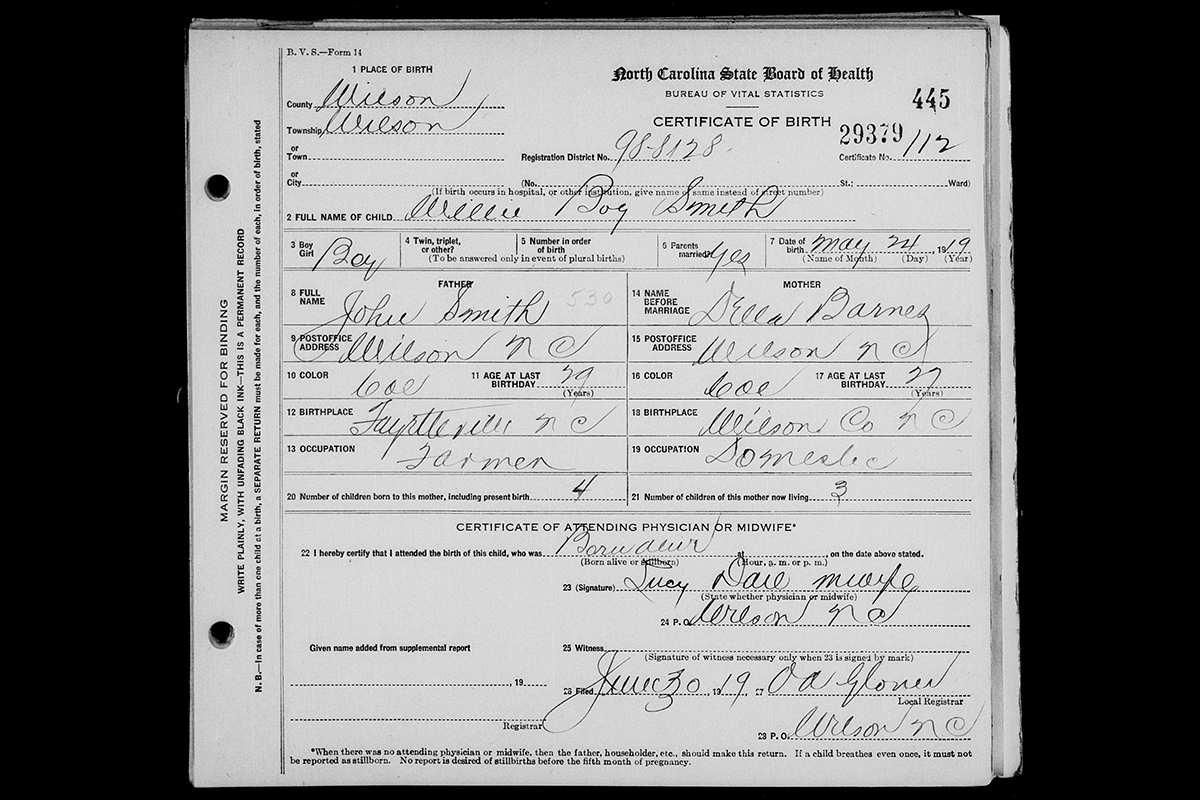 B. V. S.—Form 14
1 PLACE OF BIRTH
North Carolina State Board of Health
BUREAU OF VITAL STATISTICS
445
County Wilson
CERTIFICATE OF BIRTH
Township Wilson
29379
or
Town
Registration District No. 98-8128
Certificate No. 112
or
City (No. St.; Ward)
(If birth occurs in hospital, or other institution, give name of same instead of street number)
2 FULL NAME OF CHILD Willie Boy Smith
3 Boy Girl Boy
4 Twin, triplet, or other?
5 Number in order of birth
(To be answered only in event of plural births)
6 Parents married? Yes
7 Date of birth May 24, 1919
(Name of Month) (Day) (Year)
FATHER
8 FULL NAME John Smith 530
9 POSTOFFICE ADDRESS Wilson N C
10 COLOR Col 11 AGE AT LAST BIRTHDAY 29
(Years)
12 BIRTHPLACE Fayetteville N C
13 OCCUPATION Farmer
MOTHER
14 NAME BEFORE MARRIAGE Della Barnes
15 POSTOFFICE ADDRESS Wilson N C
16 COLOR Col 17 AGE AT LAST BIRTHDAY 27
(Years)
18 BIRTHPLACE Wilson Co N C
19 OCCUPATION Domestic
20 Number of children born to this mother, including present birth 4
21 Number of children of this mother now living 3
CERTIFICATE OF ATTENDING PHYSICIAN OR MIDWIFE*
22 I hereby certify that I attended the birth of this child, who was Born alive at , on the date above stated.
(Born alive or stillborn) (Hour, a. m. or p. m.)
23 (Signature) Lucy
(State whether physician or midwife)
24 P. O. Wilson N C
Given name added from supplemental report
25 Witness
(Signature of witness necessary only when 23 is signed by mark)
, 19
26 Filed June 30, 1919 27
Local Registrar
Registrar
28 P. O. Wilson N C
*When there was no attending physician or midwife, then the father, householder, etc., should make this return. If a child breathes even once, it must not
be reported as stillborn. No report is desired of stillbirths before the fifth month of pregnancy.
MARGIN RESERVED FOR BINDING
WRITE PLAINLY, WITH UNFADING BLACK INK—THIS IS A PERMANENT RECORD
N. B.—In case of more than one child at a birth, a SEPARATE RETURN must be made for each, and the number of each, in order of birth, stated